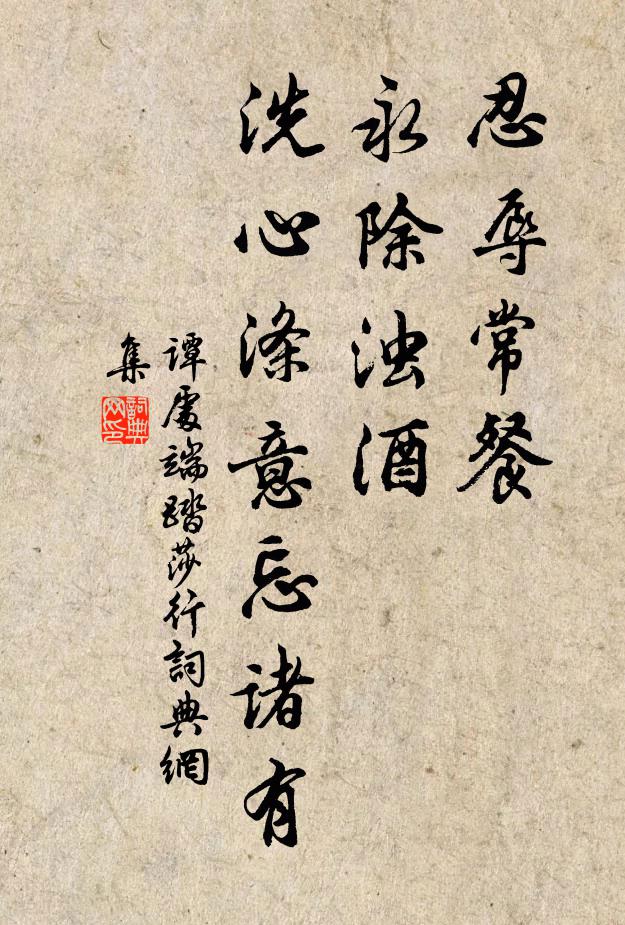 忍辱常餐
永除浊酒
洗心涤意忘诸有
谭處端踏莎行詞典網
集
詞典网印